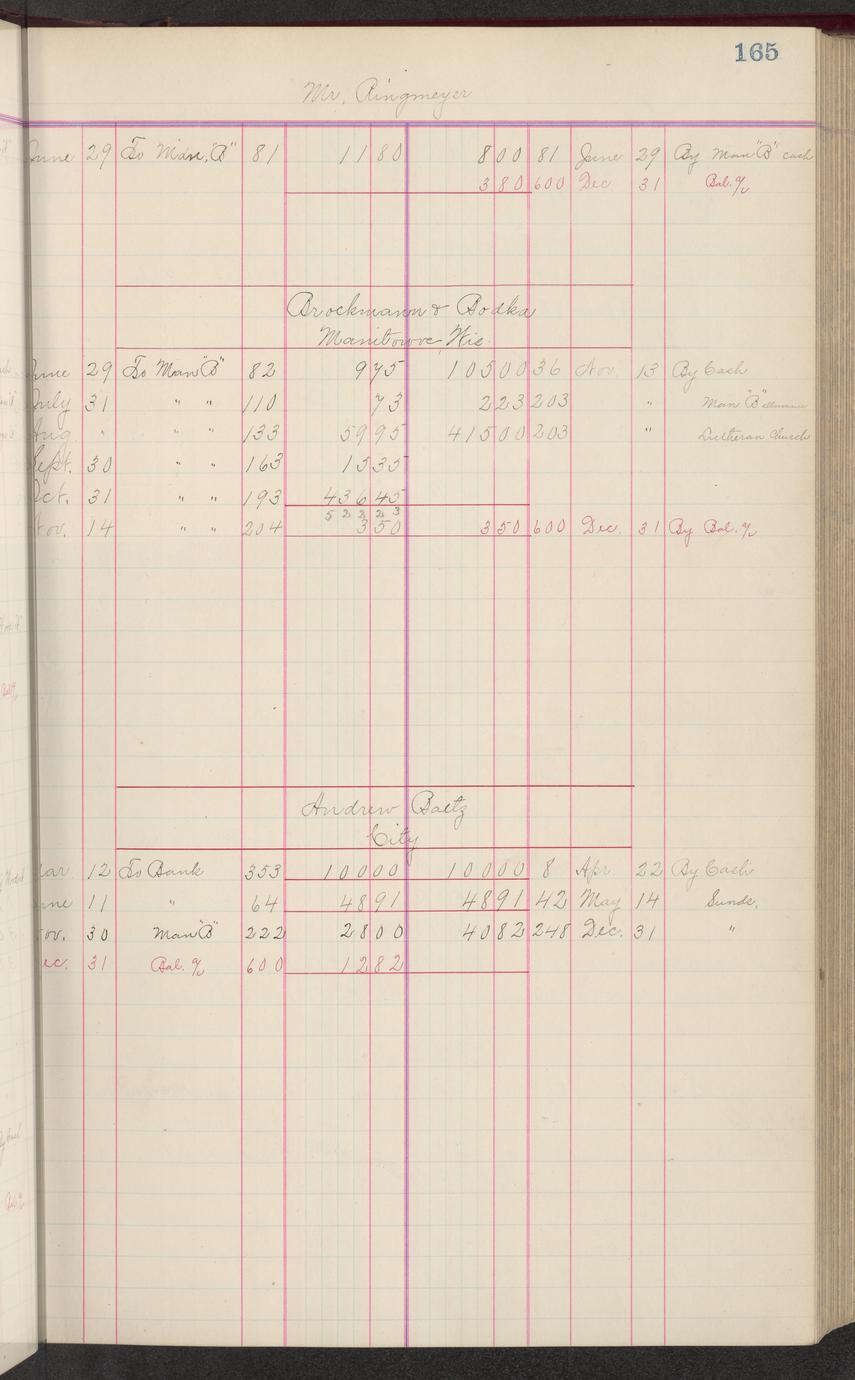 165
Mr. Ringmeyer
June 29 To Man. "B" 81 11 80 8 00 81 June 29 By Man "B" cash
3 80 600 Dec. 31 Bal. %
Brockmann & Bodka
Manitowoc Wis.
June 29 To Man "B" 82 9 75 105 00 36 Nov. 13 By Cash
July 31 " " 110 73 2 23 203 " Man "B"
Aug. " " " 133 59 95 415 00 203 " Lutheran Church
Sept. 30 " " 163 15 35
Oct. 31 " " 193 436 45
522 23
Nov. 14 " " 204 3 50 3 50 600 Dec. 31 By Bal. %
Andrew Baetz
City
Mar. 12 To Bank 353 100 00 100 00 8 Apr. 22 By Cash
June 11 " 64 48 91 48 91 42 May 14 Sunds.
Nov. 30 Man "B" 222 28 00 40 82 248 Dec. 31 "
Dec. 31 Bal. % 600 12 82